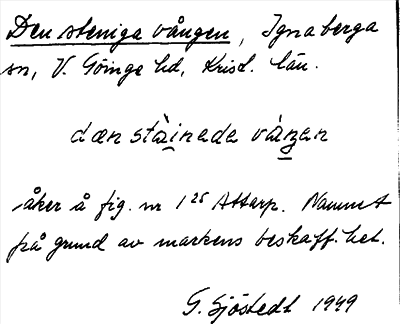 Den steniga vången, Ignaberga
sn, V. Göinge hd, Krist. län.
dæn stàinada våŋan
åker å fig. nr 1²⁵ Attarp. Namnet
på grund av markens beskaff. het.
G. Sjöstedt 1949